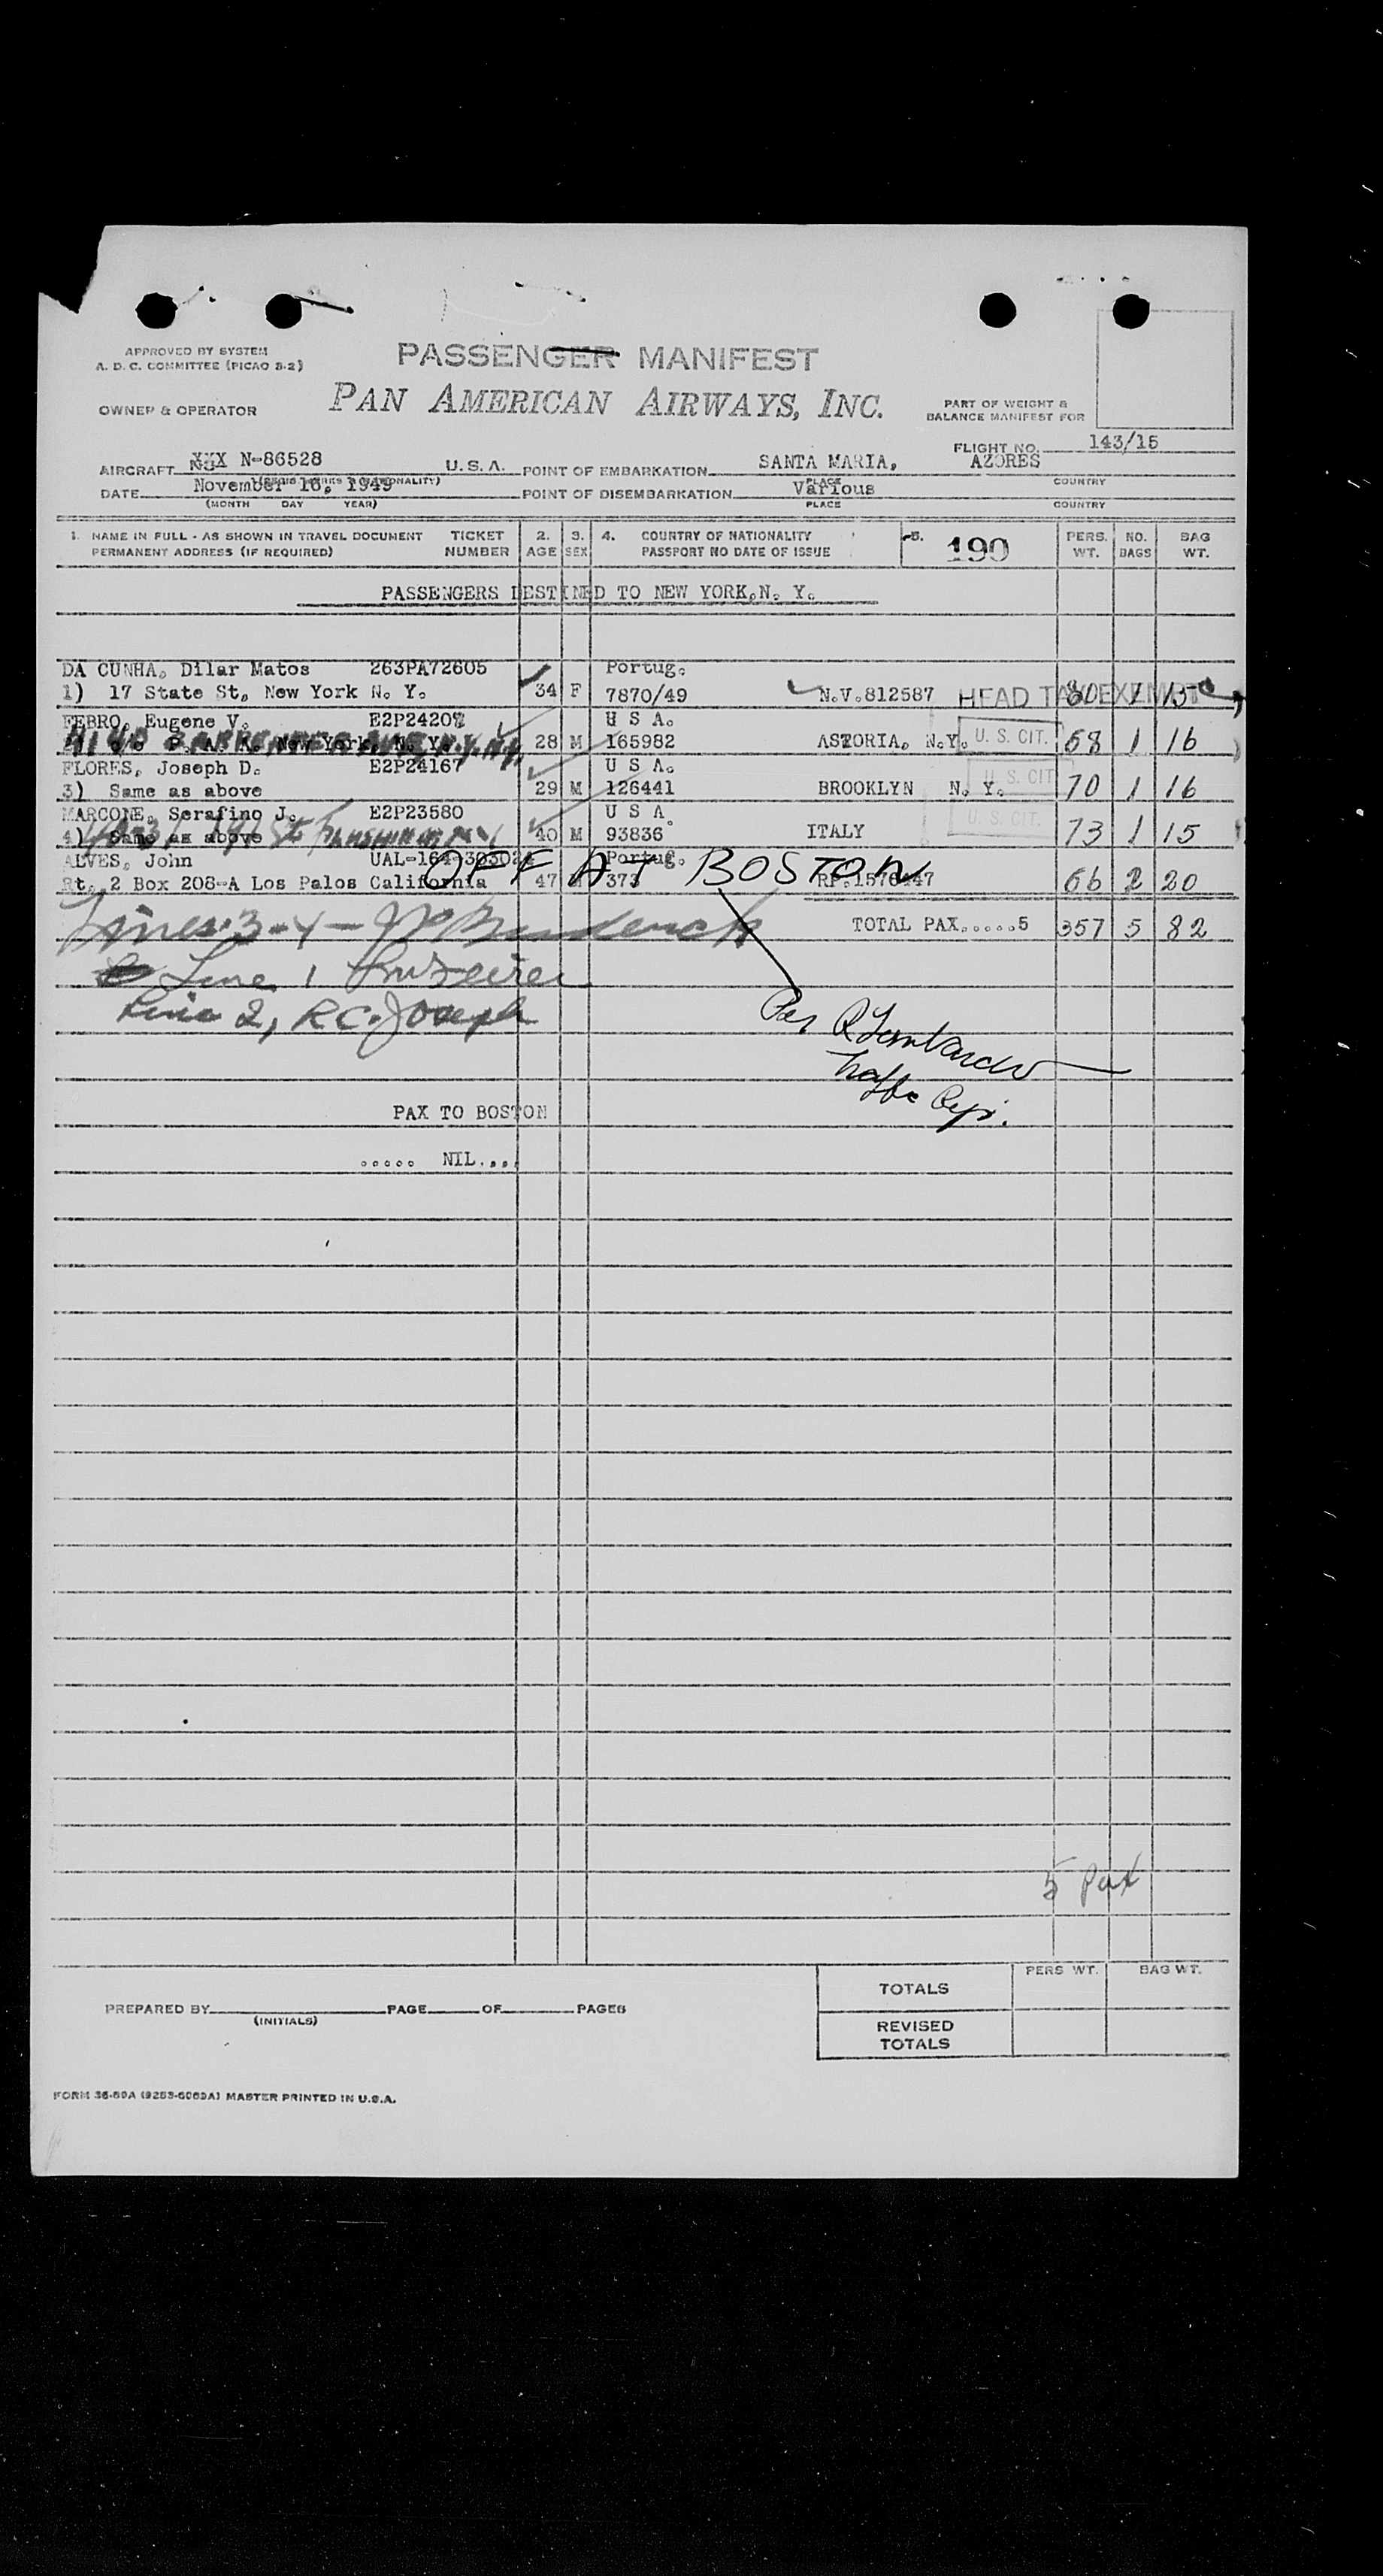 APPROVED BY SYSTEM
A. D. C. COMMITTEE (PICAO 8-2)
PASSENGER MANIFEST
OWNER & OPERATOR
PAN AMERICAN AIRWAYS, INC.
PART OF WEIGHT &
BALANCE MANIFEST FOR
FLIGHT NO. 143/15
AIRCRAFT XXX N-86528 U. S. A. POINT OF EMBARKATION SANTA MARIA, AZORES
PLACE COUNTRY
DATE November 16, 1949 POINT OF DISEMBARKATION Various
(MONTH DAY YEAR) PLACE COUNTRY
1. NAME IN FULL - AS SHOWN IN TRAVEL DOCUMENT TICKET 2. 3. 4. COUNTRY OF NATIONALITY 5. 190 PERS. NO. BAG
PERMANENT ADDRESS (IF REQUIRED) NUMBER AGE SEX PASSPORT NO DATE OF ISSUE WT. BAGS WT.
PASSENGERS DESTINED TO NEW YORK, N. Y.
DA CUNHA, Dilar Matos 263PA72605 Portug.
1) 17 State St, New York N. Y. 34 F 7870/49 N.V.812587 HEAD TAX EXEMPT 1
FEBRO, Eugene V. U S A.
New York, N. Y. 28 M 165982 ASTORIA, N.Y. U. S. CIT. 68 1 16
FLORES, Joseph D. E2P24167 U S A.
3) Same as above 29 M 126441 BROOKLYN N. Y. U. S. CIT. 70 1 16
MARCONE, Serafino J. E2P23580 U S A.
4) Same as above 40 M 93836 ITALY U. S. CIT. 73 1 15
ALVES, John Portug.
Rt. 2 Box 208-A Los Palos California 47 M 373 66 2 20
OFF AT BOSTON
TOTAL PAX.....5 357 5 82
Lines 3-4 -
Line 1
Line 2, R.C. Joseph
Per R Lombardo
Traffic Rep.
PAX TO BOSTON
..... NIL....
5 Pax
PERS WT. BAG WT.
TOTALS
PREPARED BY PAGE OF PAGES
(INITIALS)
REVISED
TOTALS
FORM 36-50A (9253-6063A) MASTER PRINTED IN U.S.A.